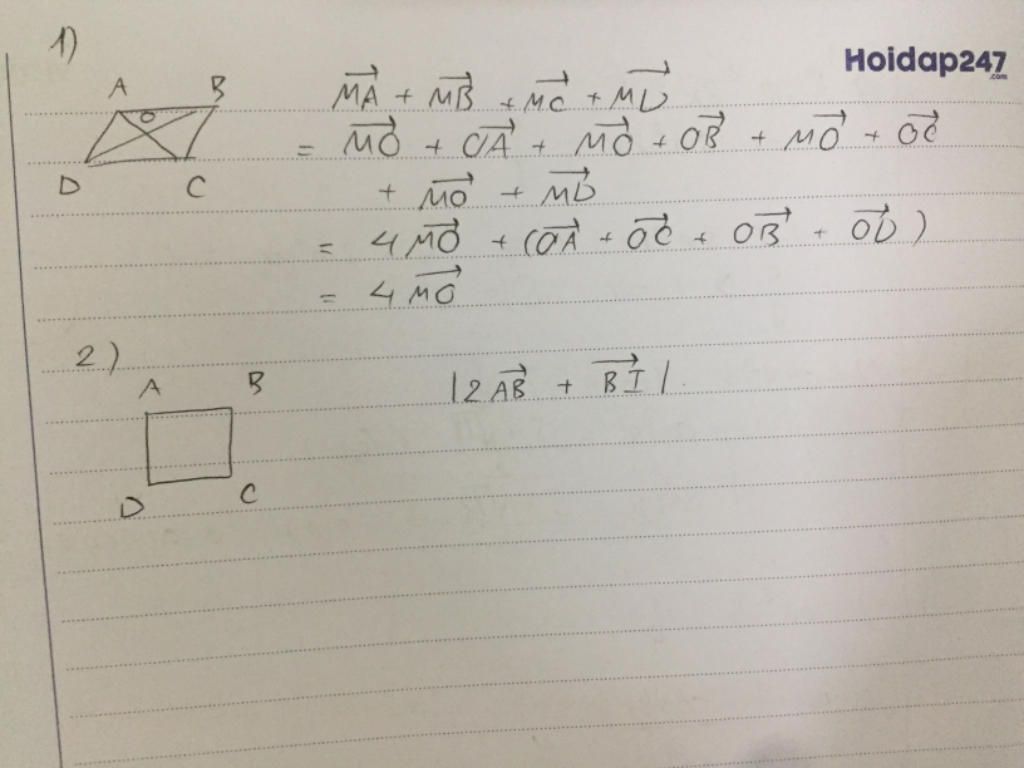 1)
Hoidap247
.com
A B
O
D C
MA + MB + MC + MD
= MO + OA + MO + OB + MO + OC
+ MO + MD
= 4 MO + (OA + OC + OB + OD)
= 4 MO
2)
A B
D C
|2AB + BI|.